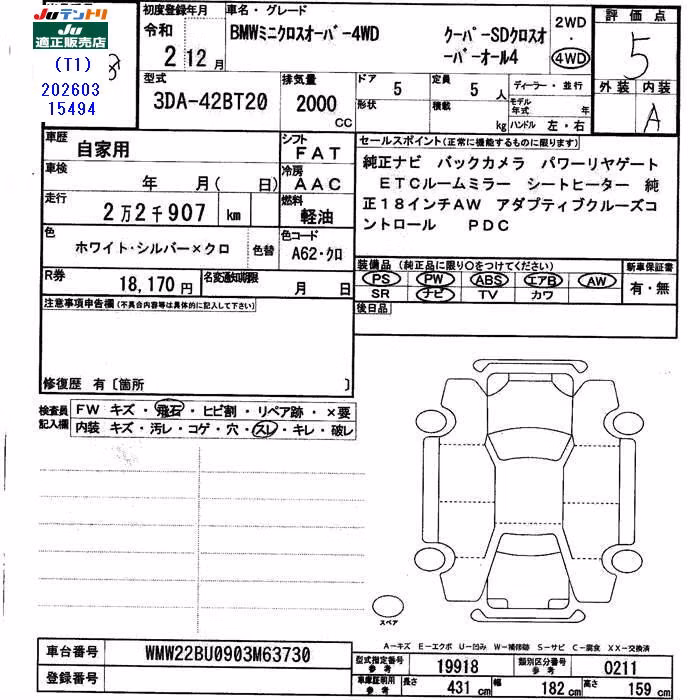 Ju テントリ
Ju 適正販売店
(T1)
202603
15494
初度登録年月
令和
2年12月
車名・グレード
BMWミニクロスオーバー4WD クーパーSDクロスオ
ーバーオール4
2WD
・
4WD
評価点
5
外装 内装
A
型式
3DA-42BT20
排気量
2000
CC
ドア 5
形状
定員 5 人
積載 kg
ディーラー・並行
モデル年式 年
ハンドル 左・右
車歴 自家用
シフト FAT
車検 年 月( 日)
冷房 AAC
走行 2万2千907 km
燃料 軽油
色 ホワイト・シルバー×クロ 色替
色コード A62・クロ
R券 18,170円
名変通知期限 月 日
セールスポイント(正常に機能するものに限ります)
純正ナビ バックカメラ パワーリヤゲート
ETCルームミラー シートヒーター 純
正18インチAW アダプティブクルーズコ
ントロール PDC
装備品 (純正品に限り○をつけてください)
PS PW ABS エアB AW
SR ナビ TV カワ
新車保証書
有・無
後日品
注意事項申告欄(不具合内容等は具体的に記入して下さい)
修復歴 有〔箇所 〕
検査員記入欄
FW キズ・飛石・ヒビ割・リペア跡・×要
内装 キズ・汚レ・コゲ・穴・スレ・キレ・破レ
スペア
A-キズ E-エクボ U-凹み W-補修跡 S-サビ C-腐食 XX-交換済
車台番号 WMW22BU0903M63730
登録番号
型式指定番号参考 19918
類別区分番号参考 0211
車庫証明用参考 長さ 431 cm 幅 182 cm 高さ 159 cm